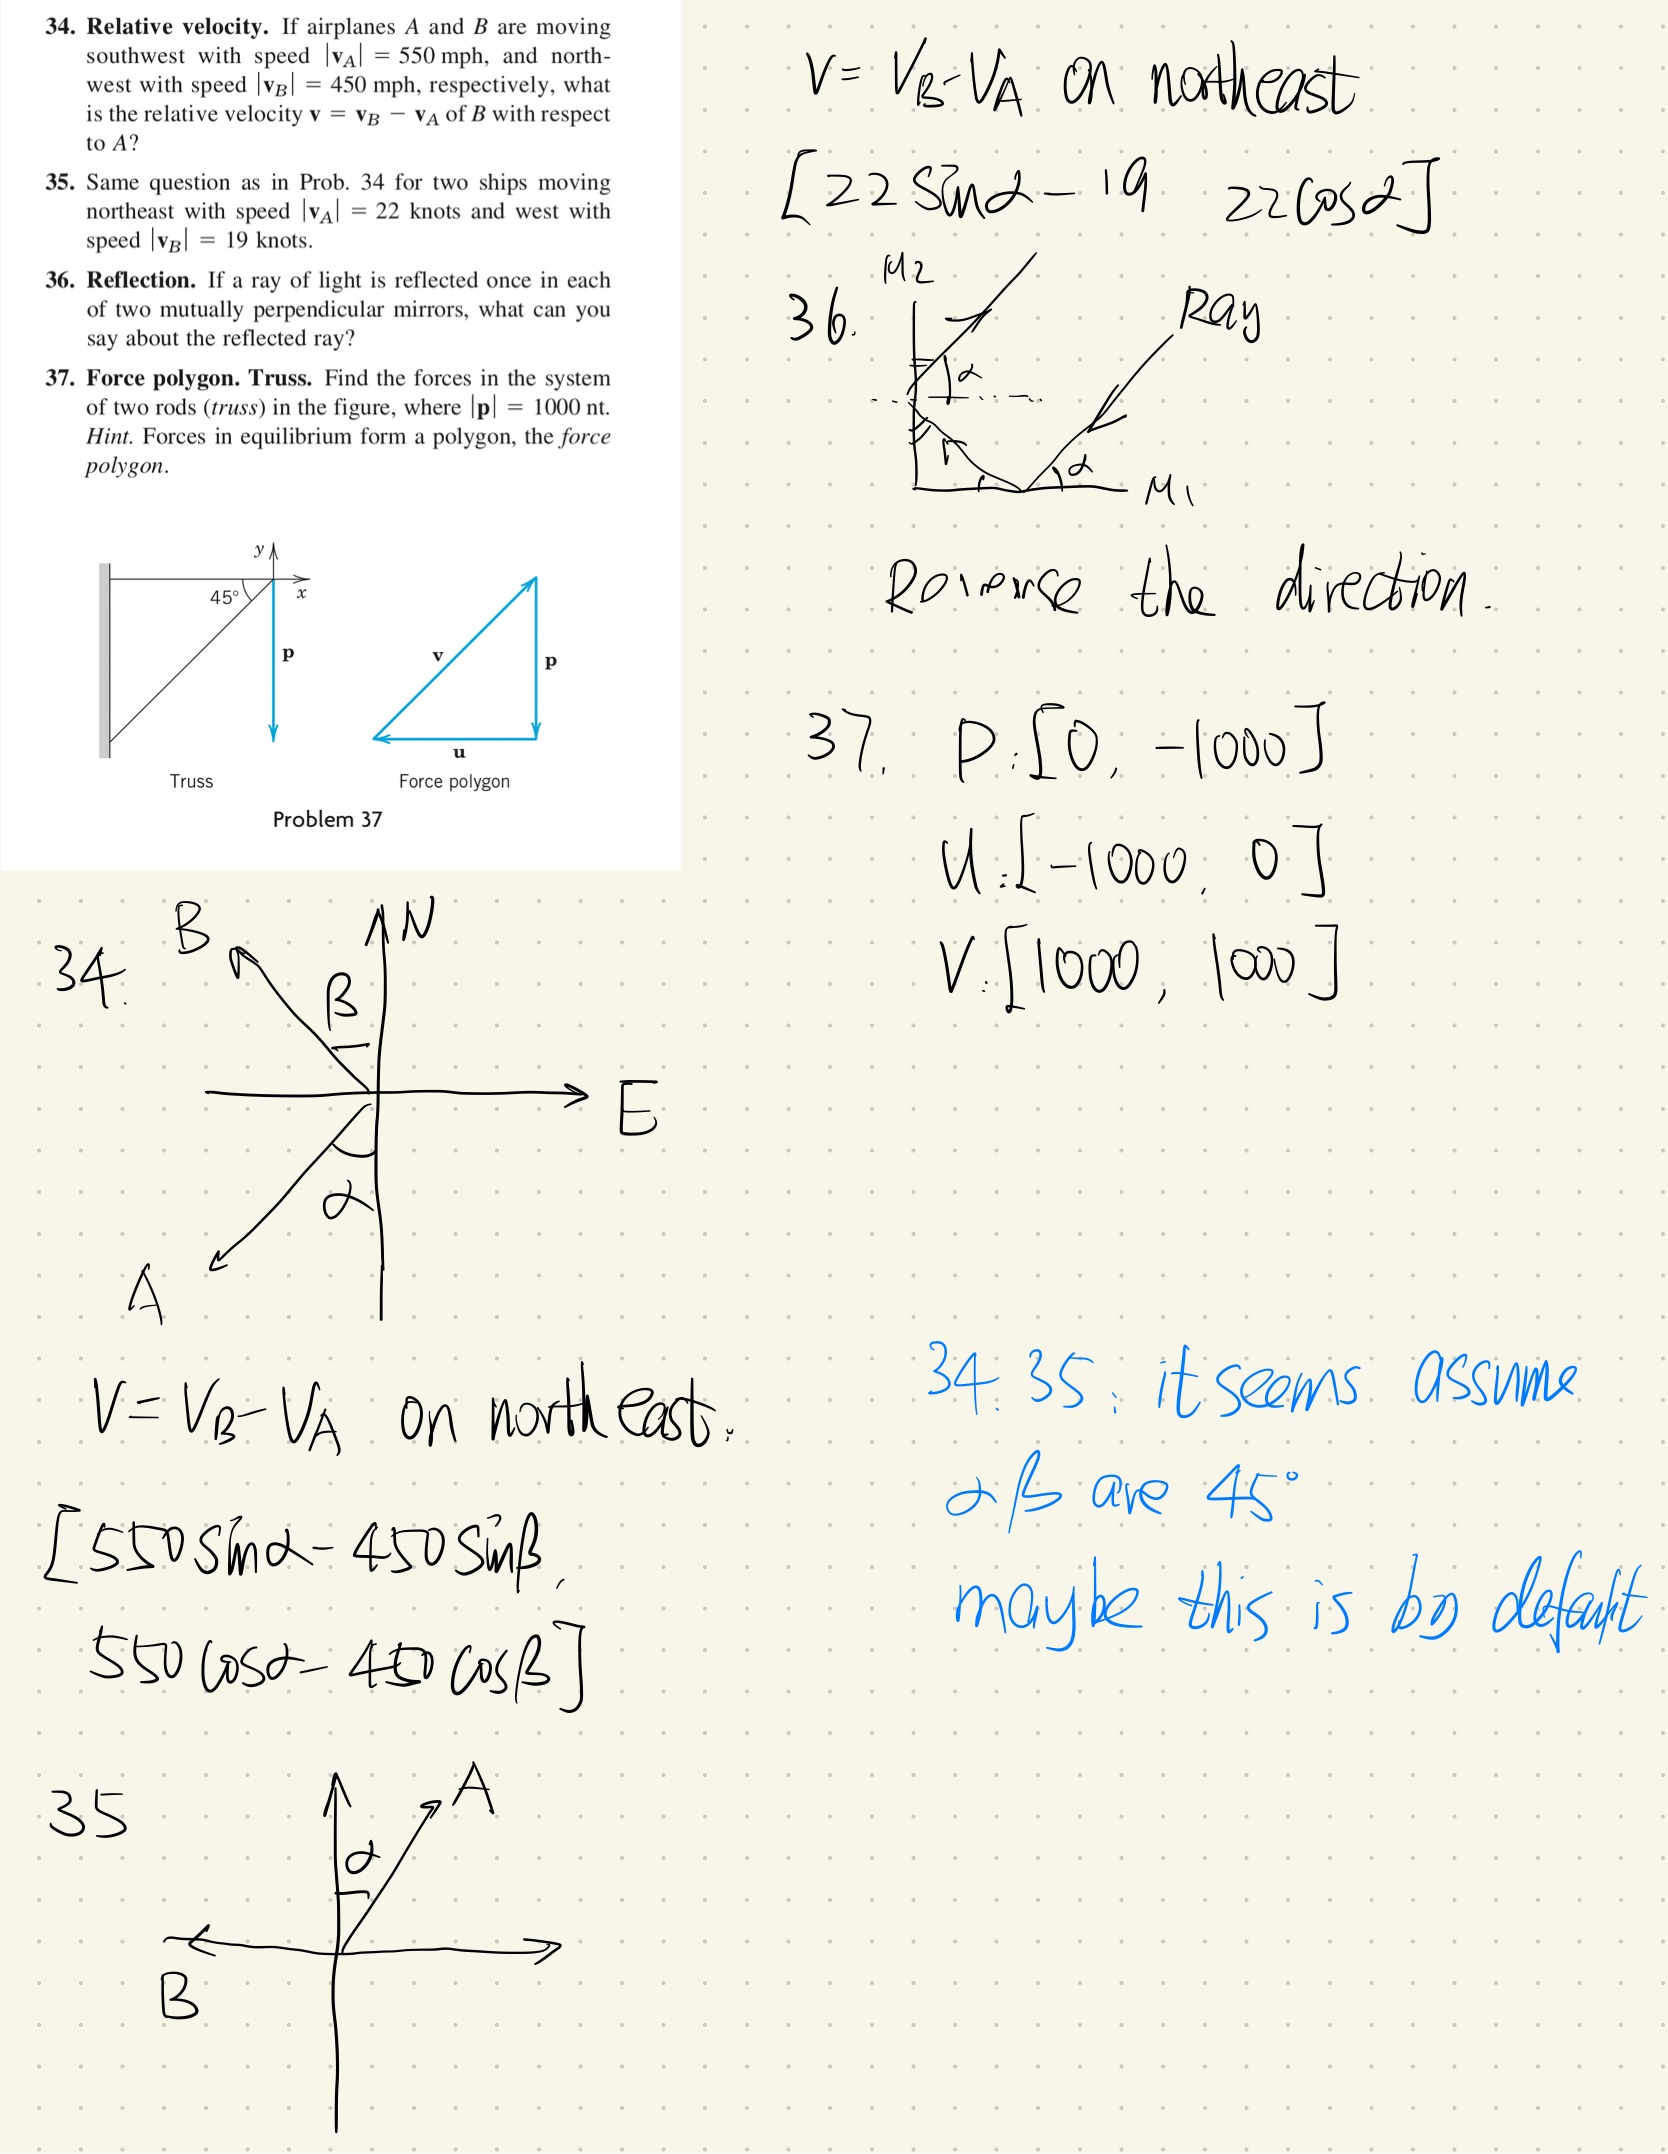 34. Relative velocity. If airplanes A and B are moving
southwest with speed |vA| = 550 mph, and north-
west with speed |vB| = 450 mph, respectively, what
is the relative velocity v = vB − vA of B with respect
to A?
35. Same question as in Prob. 34 for two ships moving
northeast with speed |vA| = 22 knots and west with
speed |vB| = 19 knots.
36. Reflection. If a ray of light is reflected once in each
of two mutually perpendicular mirrors, what can you
say about the reflected ray?
37. Force polygon. Truss. Find the forces in the system
of two rods (truss) in the figure, where |p| = 1000 nt.
Hint. Forces in equilibrium form a polygon, the force
polygon.
y
x
45°
p
v
p
u
Truss
Force polygon
Problem 37
34.
B
N
β
E
α
A
V = VB − VA on northeast.
[550 sinα − 450 sinβ,
550 cosα − 450 cosβ]
35
A
α
B
V = VB − VA on northeast
[22 sinα − 19 22 cosα]
36.
M2
Ray
α
α
M1
the direction.
37. P: [0, −1000]
U: [−1000, 0]
V: [1000, 1000]
34. 35: it seems assume
α β are 45°
maybe this is by default